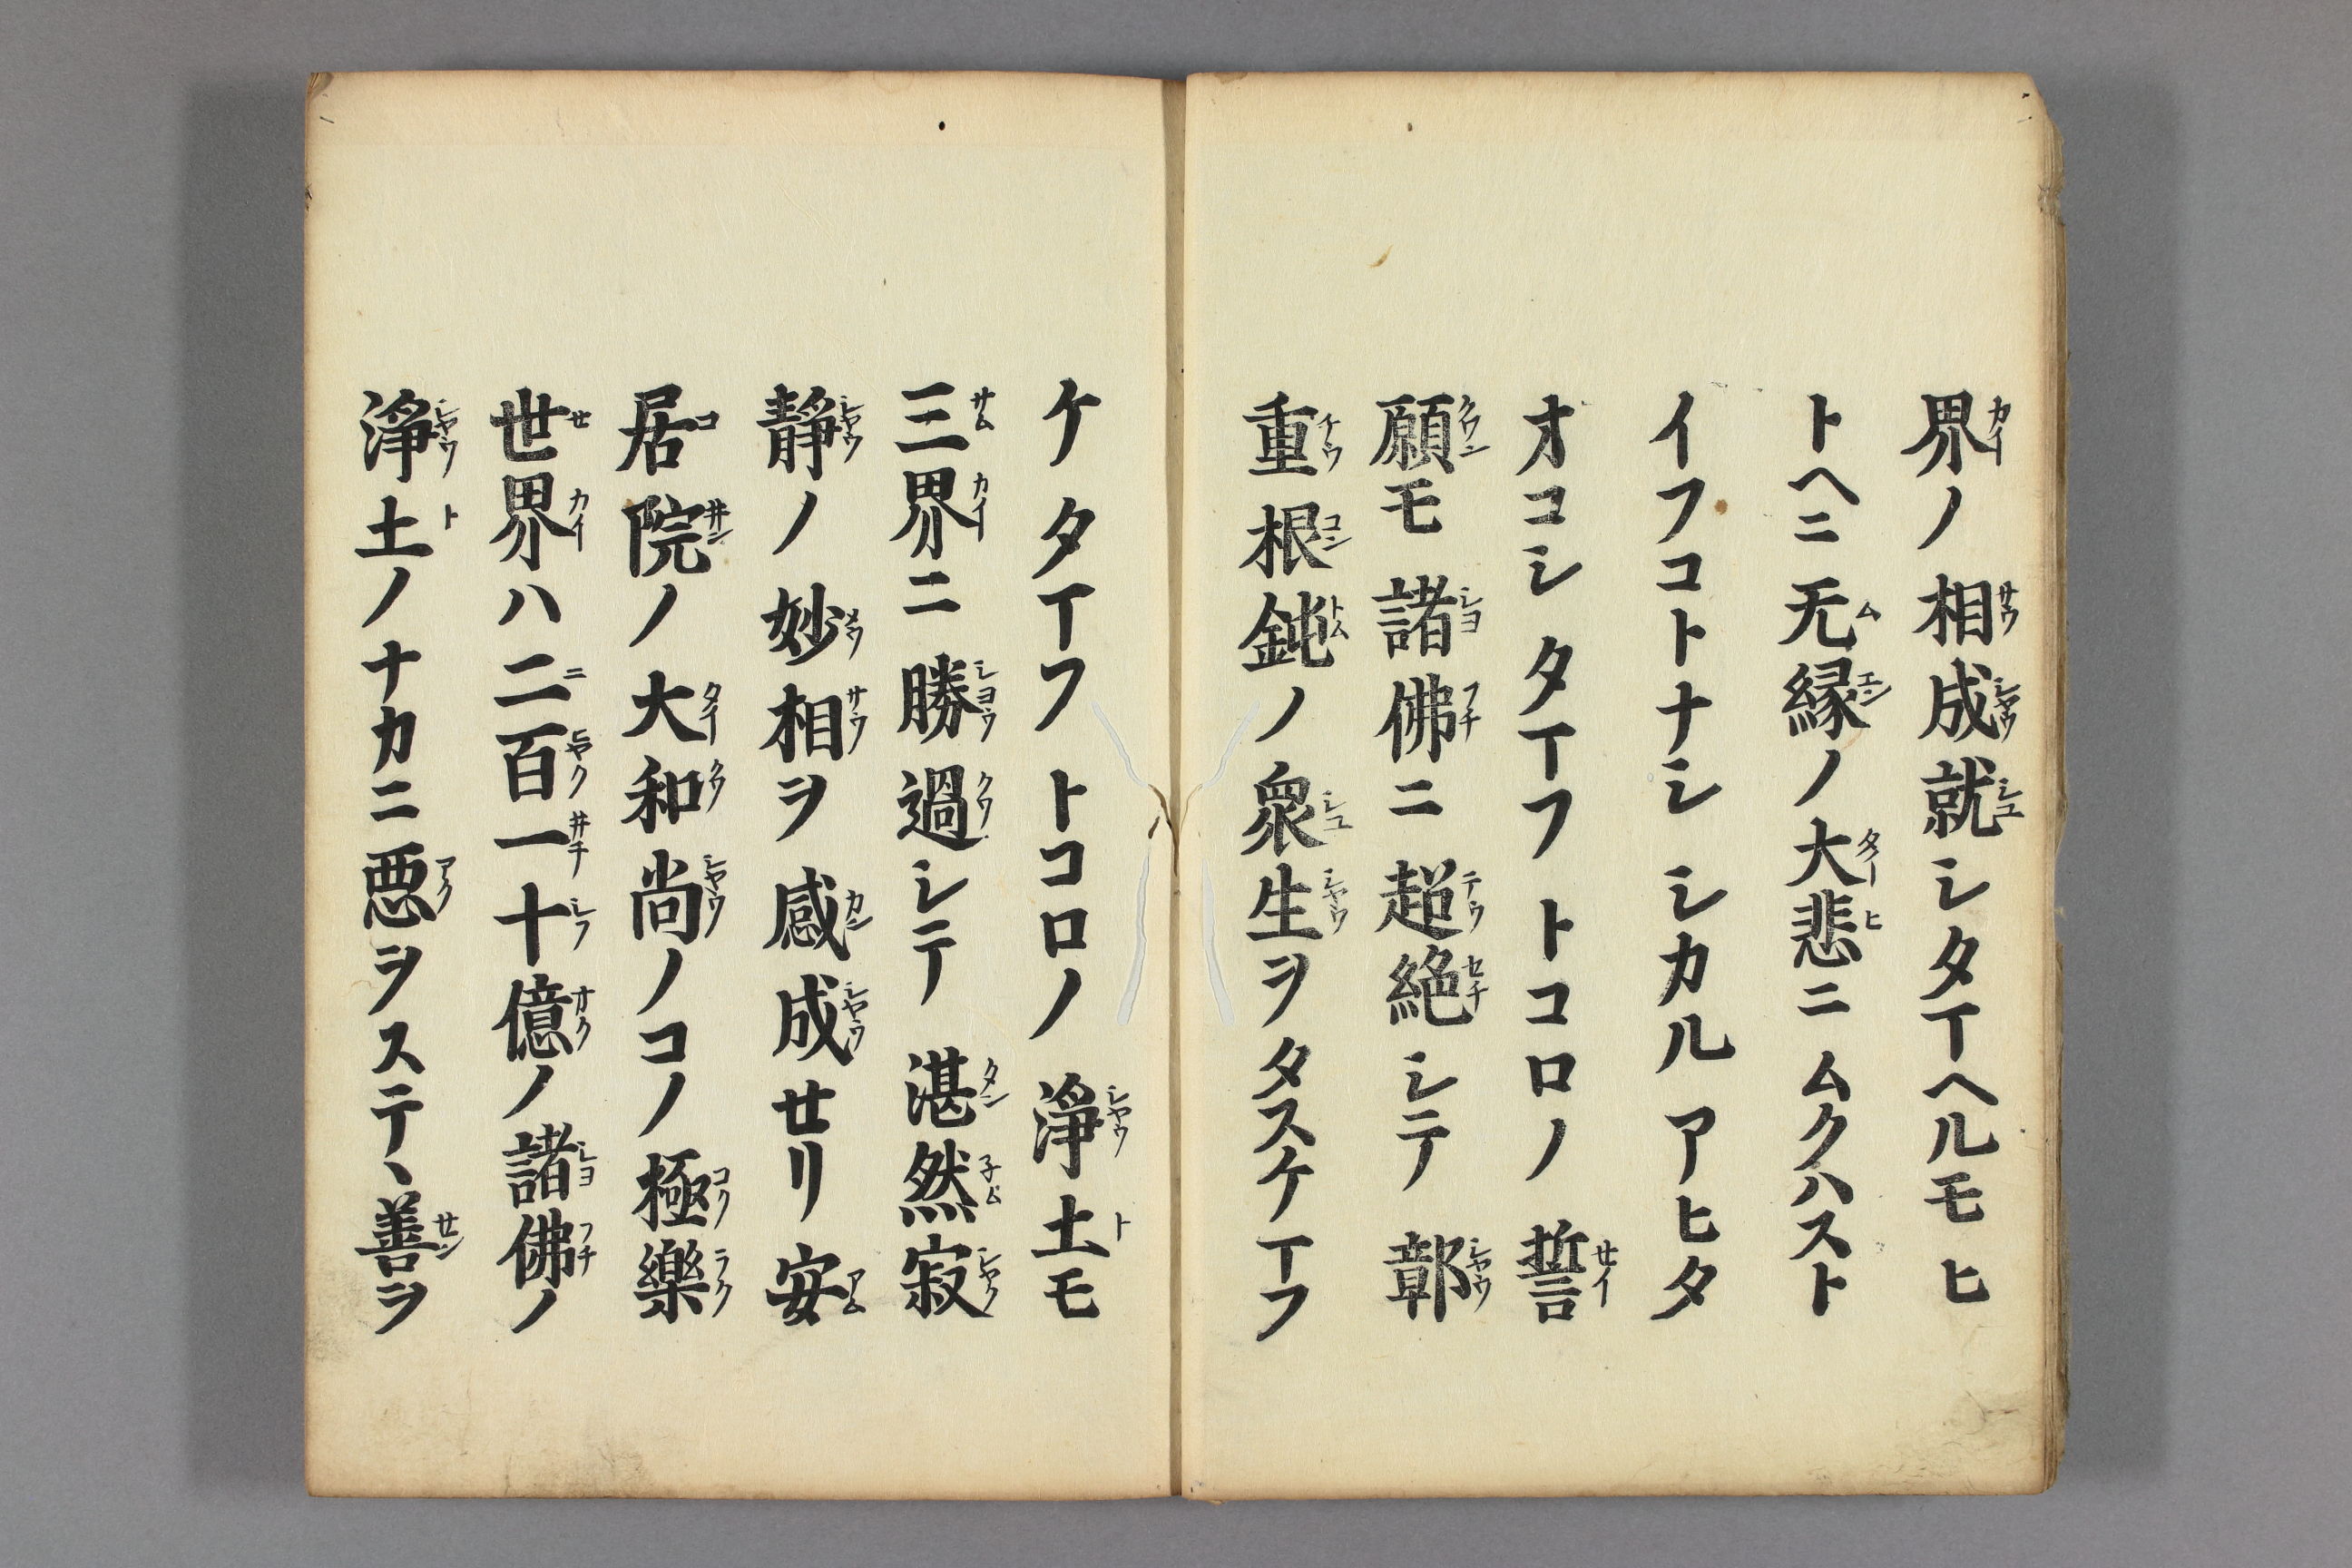 界ノ相成就シタマヘルモヒ
トヘニ无縁ノ大悲ニムクハスト
イフコトナシシカルアヒタ
オコシタマフトコロノ誓
願モ諸佛ニ超絶シテ鄣
重根鈍ノ衆生ヲタスケマフ
ケタマフトコロノ淨土モ
三界ニ勝過シテ湛然寂
静ノ妙相ヲ感成セリ安
居院ノ大和尚ノコノ極樂
世界ハ二百一十億ノ諸佛ノ
淨土ノナカニ悪ヲステヽ善ヲ